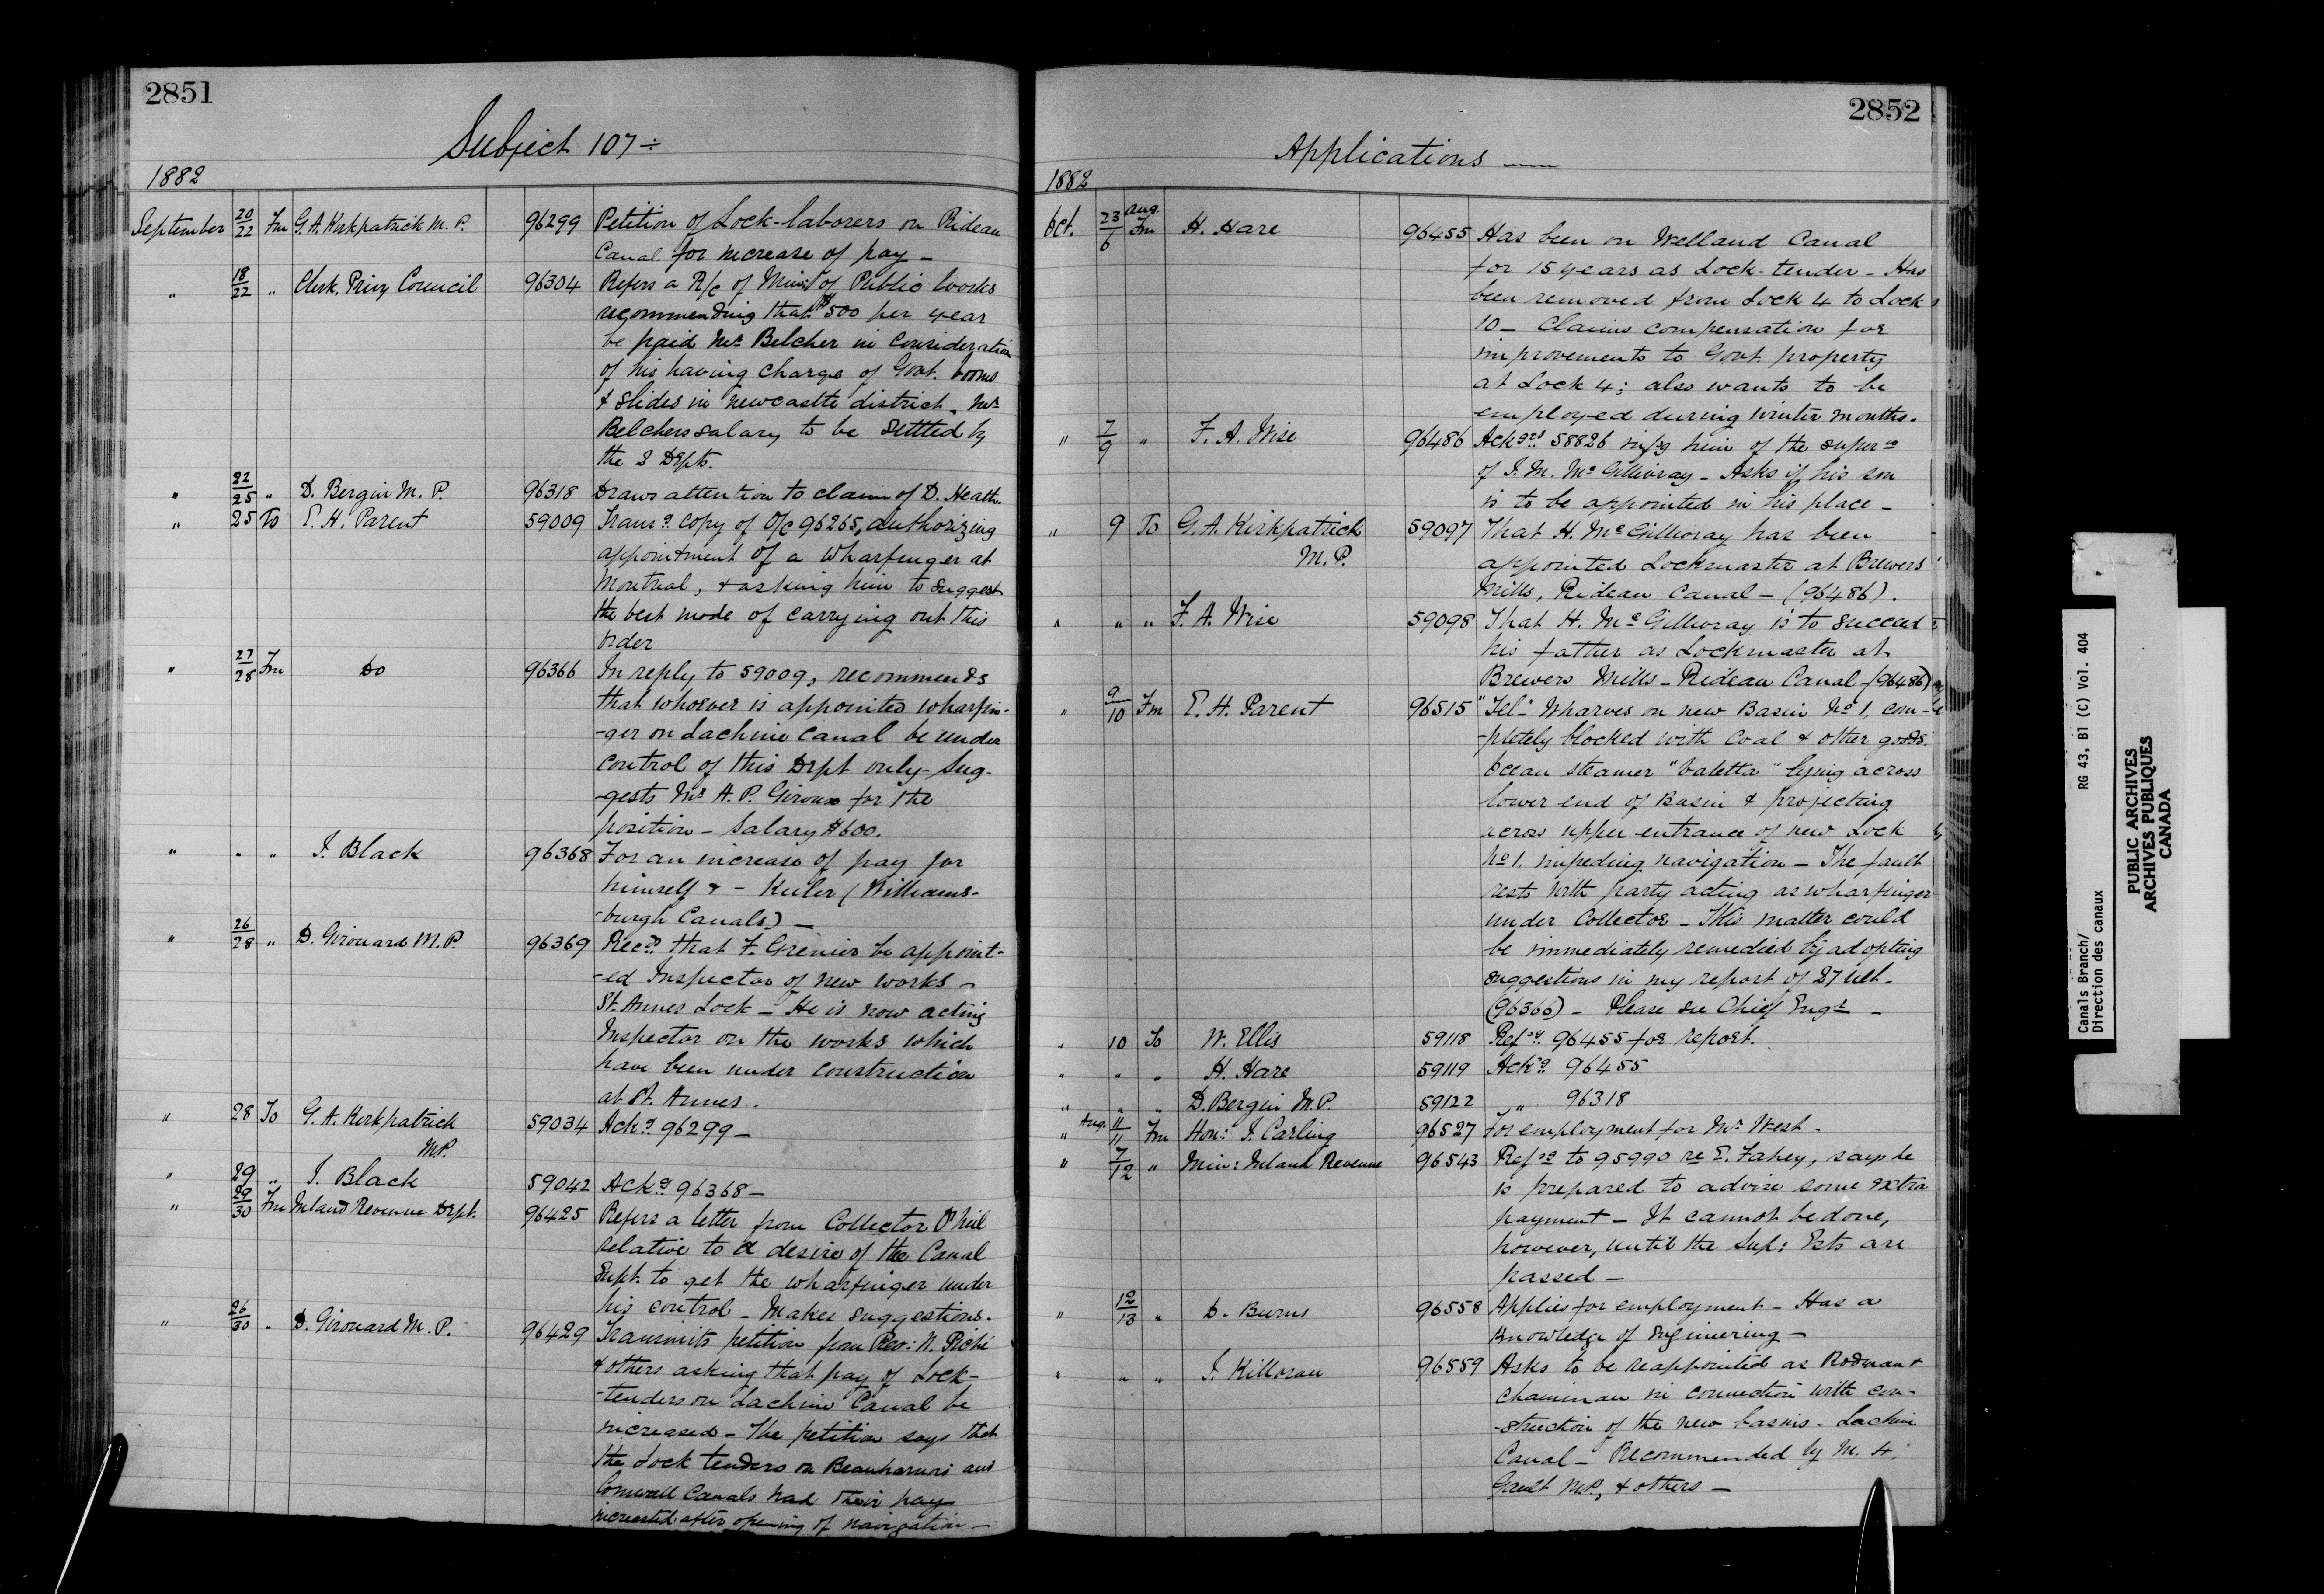 2851
Subject 107 ÷
1882
September 20/22 Fm G. A. Kirkpatrick M. P. 96299 Petition of Lock-laborers on Rideau
Canal for increase of pay —
" 18/22 " Clerk, Privy Council 96304 Refers a R/c of Minr. of Public Works
recommending that $500 per year
be paid Mr. Belcher in consideration
of his having charge of Govt. booms
& Slides in Newcastle district. Mr.
Belchers salary to be settled by
the 2 Depts.
" 22/25 " D. Bergin M. P. 96318 Draws attention to claim of D. Heath.
" 25 To E. H. Parent 59009 Trans.g copy of O/c 96265, authorizing
appointment of a Wharfinger at
Montreal, & asking him to suggest
the best mode of carrying out this
order
" 27/28 Fm Do 96366 In reply to 59009, recommends
that whoever is appointed wharfin-
-ger on Lachine Canal be under
control of this Dept only - Sug-
-gests Mr. A. P. Giroux for the
position — Salary $600.
" " " J. Black 96368 For an increase of pay for
himself & - Keeler (Williams-
-burgh Canals) —
" 26/28 " D. Girouard M. P. 96369 Recds that F. Grenier be appoint-
-ed Inspector of new works —
St. Annes Lock — He is now acting
Inspector on the works which
have been under construction
at St. Annes.
" 28 To G. A. Kirkpatrick 59034 Ackg 96299 —
M.P.
" 29 " J. Black 59042 Ackg 96368 —
" 29/30 Fm Inland Revenue Dept. 96425 Refers a letter from Collector O'Neil
relative to a desire of the Canal
Supt. to get the wharfinger under
his control — Makes suggestions.
" 26/30 " D. Girouard M. P. 96429 Transmits petition from Rev: N. Piché
& others asking that pay of Lock-
-tenders on Lachine Canal be
increased — The petition says that
the Lock tenders on Beauharnois and
Cornwall Canals had their pay
increased after opening of navigation —
2852
Applications
1882
Oct. 23/6 Aug. Fm H. Hare 96455 Has been on Welland Canal
for 15 years as Lock-tender — Has
been removed from Lock 4 to Lock
10 — Claims compensation for
improvements to Govt. property
at Lock 4; also wants to be
employed during winter months.
" 7/9 " F. A. Wise 96486 Ackges 58826 infg him of the super.n
of J. M. McGillivray — Asks if his son
is to be appointed in his place —
" 9 To G. A. Kirkpatrick 59097 That H. McGillivray has been
M.P. appointed Lockmaster at Brewers
Mills, Rideau Canal — (96486).
" " " F. A. Wise 59098 That H. McGillivray is to succeed
his father as Lockmaster at
Brewers Mills — Rideau Canal — (96486)
" 9/10 Fm E. H. Parent 96515 "Tel." Wharves on new Basin No 1, com-
-pletely blocked with Coal & other goods.
Ocean steamer "Valetta" lying across
lower end of Basin & projecting
across upper entrance of new Lock
No 1, impeding navigation — The fault
rests with party acting as wharfinger
under Collector — This matter could
be immediately remedied by adopting
suggestions in my report of 27 ult.
(96366) — Please see Chief Engr. —
" 10 To W. Ellis 59118 Refg 96455 for report.
" " " H. Hare 59119 Ackg 96455
" " " D. Bergin M. P. 59122 " 96318
" Aug. 11/11 Fm Hon: J. Carling 96527 For employment for Mr. West.
" 7/12 " Min: Inland Revenue 96543 Refg to 95990 re E. Fahey, says he
is prepared to advise some extra
payment — It cannot be done,
however, until the Sup: Ests are
passed —
" 12/13 " D. Burns 96558 Applies for employment — Has a
knowledge of Engineering —
" " " J. Killoran 96559 Asks to be reappointed as Rodman &
chainman in connection with con-
-struction of the new basins — Lachine
Canal — Recommended by M. H.
Gault M.P., & others —
Canals Branch/ RG 43, B1 (C) Vol. 404
Direction des canaux
PUBLIC ARCHIVES
ARCHIVES PUBLIQUES
CANADA